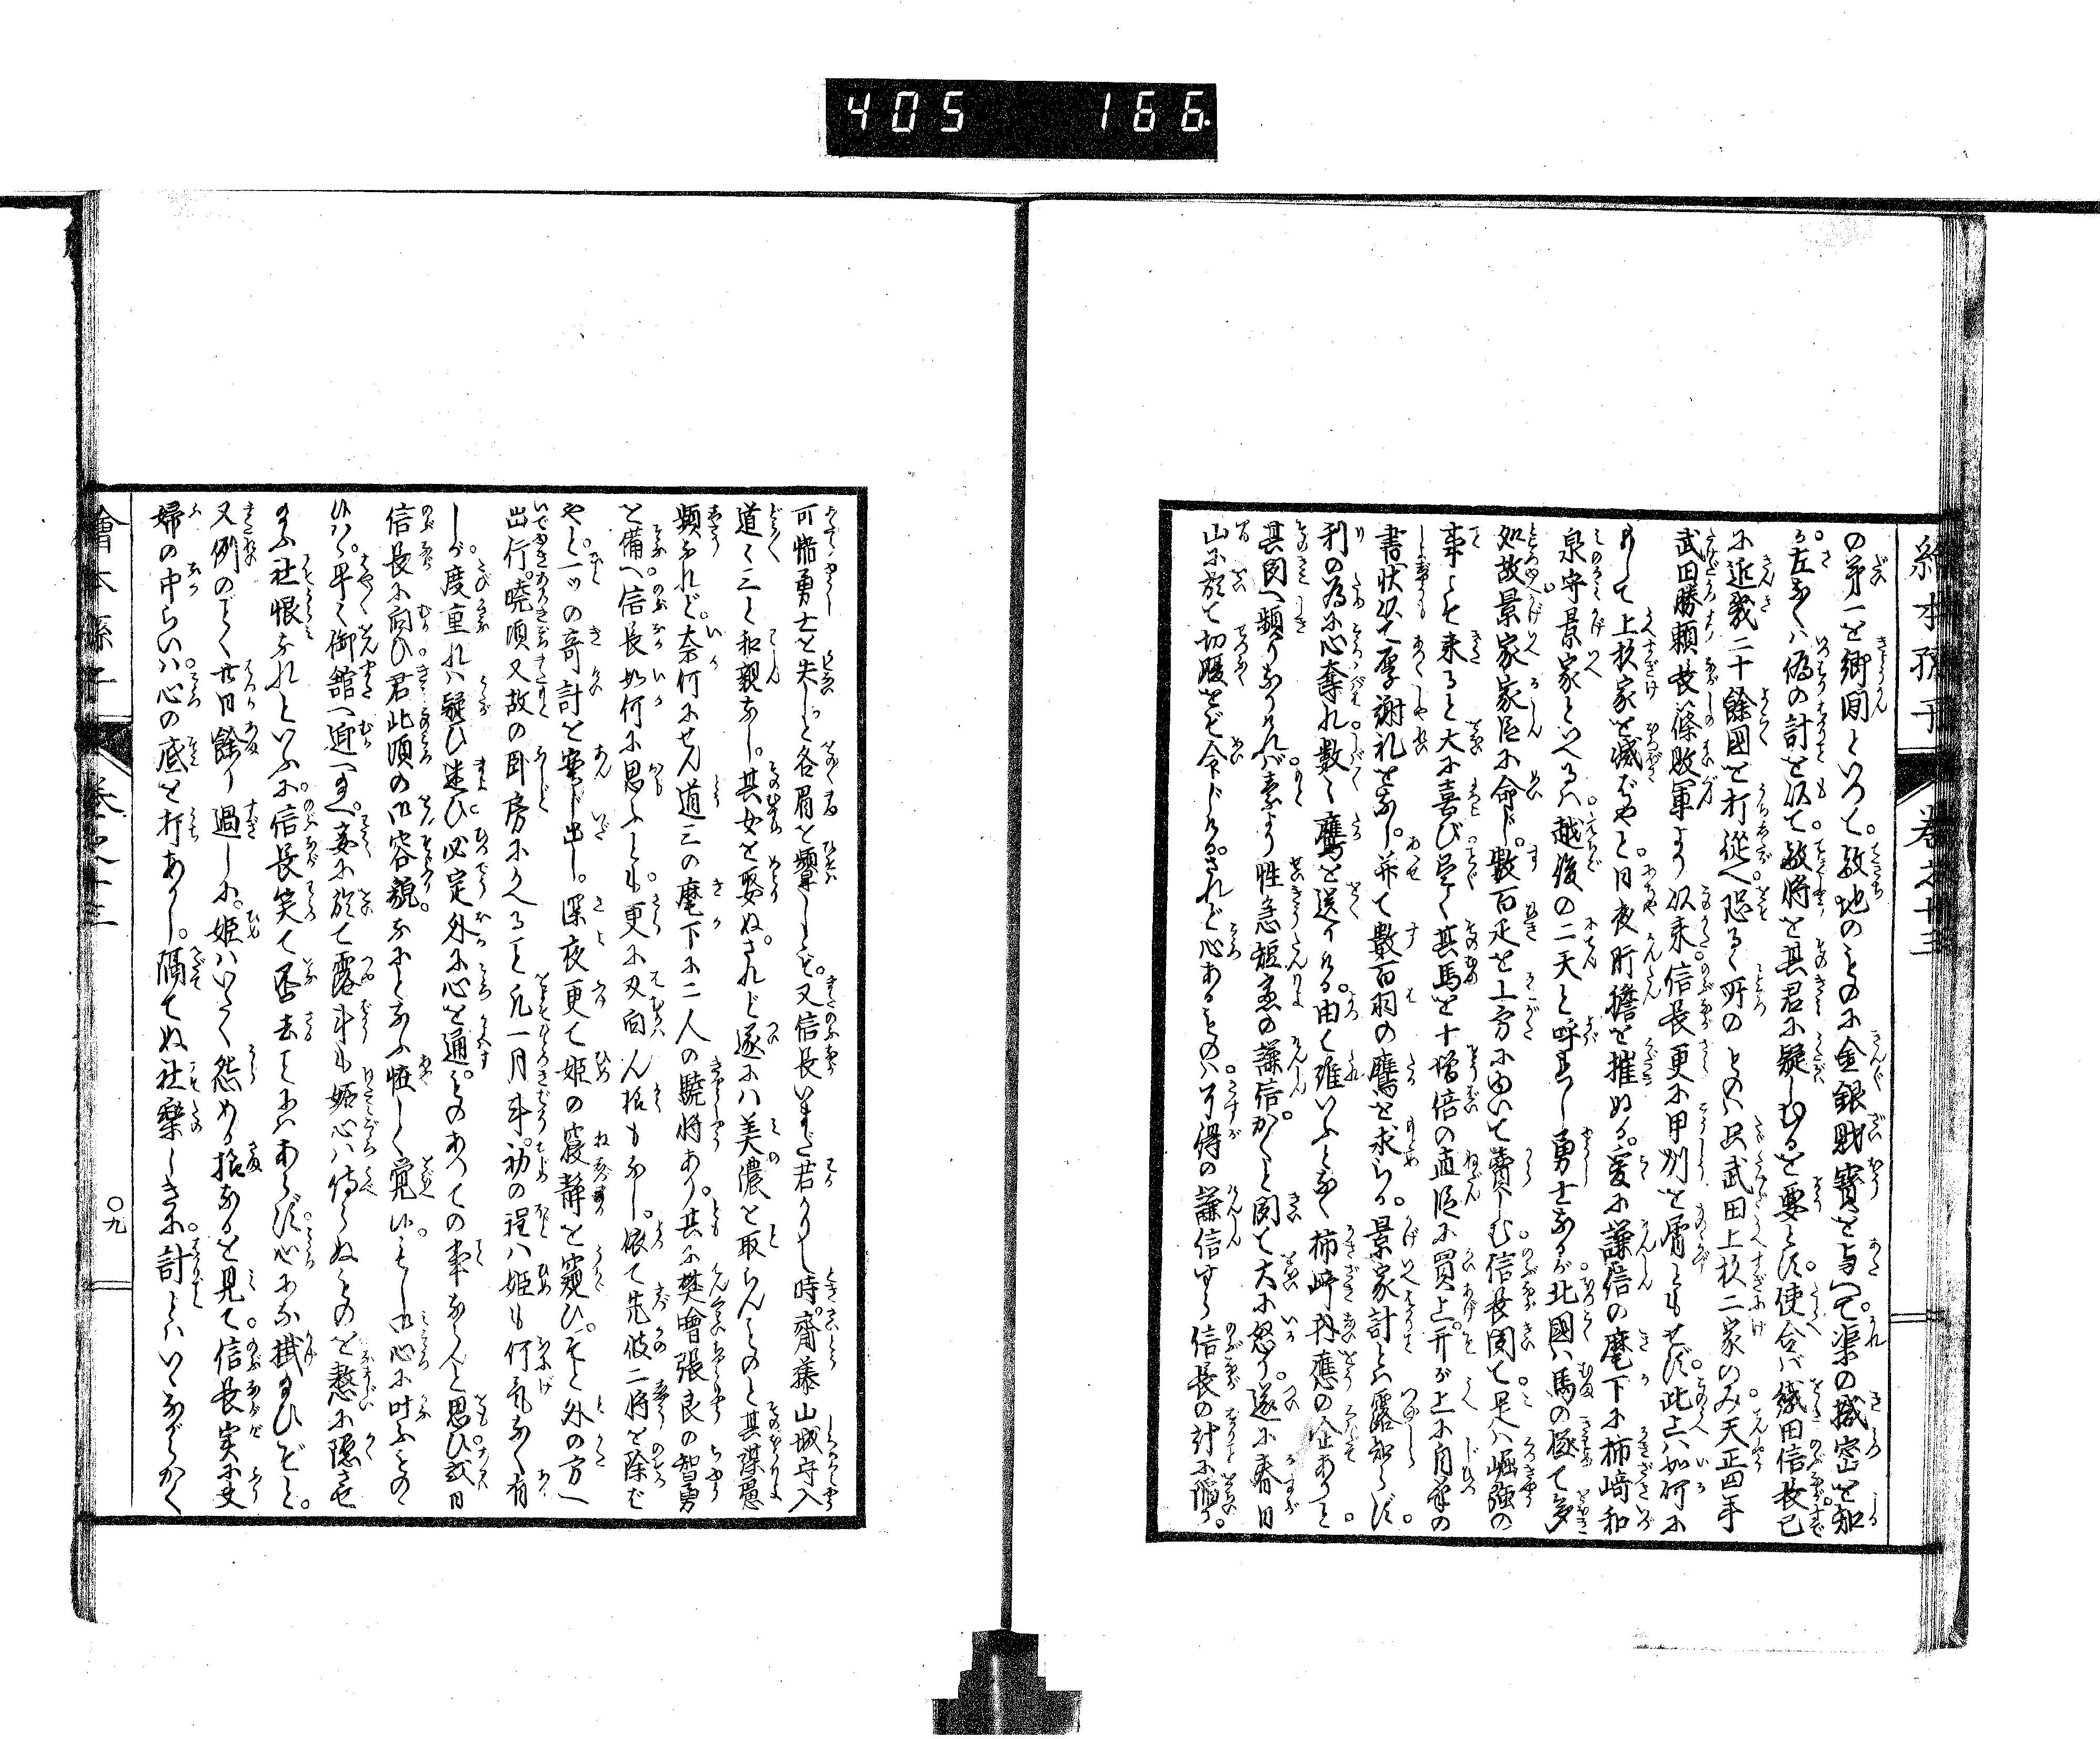 405 166
絵本孫子 巻之十三
の第一を郷間といつて。敵地のものに金銀財寳を与へて。渠の機密を知
る。左なくバ偽の計を以て。敵将を其君に疑しむるを要とす。使令バ織田信長已
に近畿二十餘國を打従へ恐るゝ所のものハ只武田上杦二家のみ。天正四年
武田勝頼長篠敗軍より以来。信長更に甲州を屑ともせず。此上ハ如何に
もして上杦家を滅ばやと。日夜肝膽を摧ぬる。爰に謙信の麾下に柿﨑和
泉守景家といへるハ。越後の二天と呼れし勇士なるが。北國ハ馬の極て多
処故。景家家臣に命じ。數百疋を上方にゆいて賣しむ。信長聞て是ハ崛強の
事こそ来ると大に喜び。尽く其馬を十増倍の直段に買上。刋が上に自筆の
書状以て厚謝礼をなし。并て數百羽の鷹を求らる。景家計とハ露知らず。
利の為に心奪れ數々鷹を送りける。由て誰いふとなく柿﨑丹應の企ありと。
其聞へ頻りなりけれバ。素より性急短慮の謙信。かくと聞て大に怒り。遂に春日
山に於て切腹をぞ令じける。されど心あるものハ。了得の謙信すら信長の計に陥り。
可惜勇士を失しと各眉を顰しとぞ。又信長いまだ若かりし時。齋藤山城守入
道々三と和親なし。其女を娶ぬ。されど遂にハ美濃を取らんものと其謀慮
頻なれど。奈何にせん道三の麾下に二人の驍将あり。其に樊噲張良の智勇
を備へ信長如何に思ふとも。更に刃向ん術もなし。依て先彼二将を除ば
やと。一ツの奇計を案じ出し。深夜更て姫の寝静を窺ひ。そと外の方へ
出行。暁頃又故の臥房にかへること凡一月斗。初の程ハ姫も何気なく有
しが。度重れバ疑ひ迷ひ必定外に心を通ものあつての事ならんと思ひ或日
信長に向ひ君此頃の御容貌。なにとなふ恠しく覚い。もし御心に叶ふもの
いハゞ。早く御舘へ迎へ玉へ。妾に於て露斗も妬心ハ侍らぬものを憖に隠させ
玉ふ社恨なれといふに。信長笑て否去ことにハあらず。心にな掛玉ひぞと。
又例のごとく廿日餘り過しに。姫ハいたく怨める様なるを見て。信長実に夫
婦の中らいハ。心の底を打あかし。隔てぬ社樂しきに。計とハいゝながらかく
繪本孫子 巻之十三 〇九